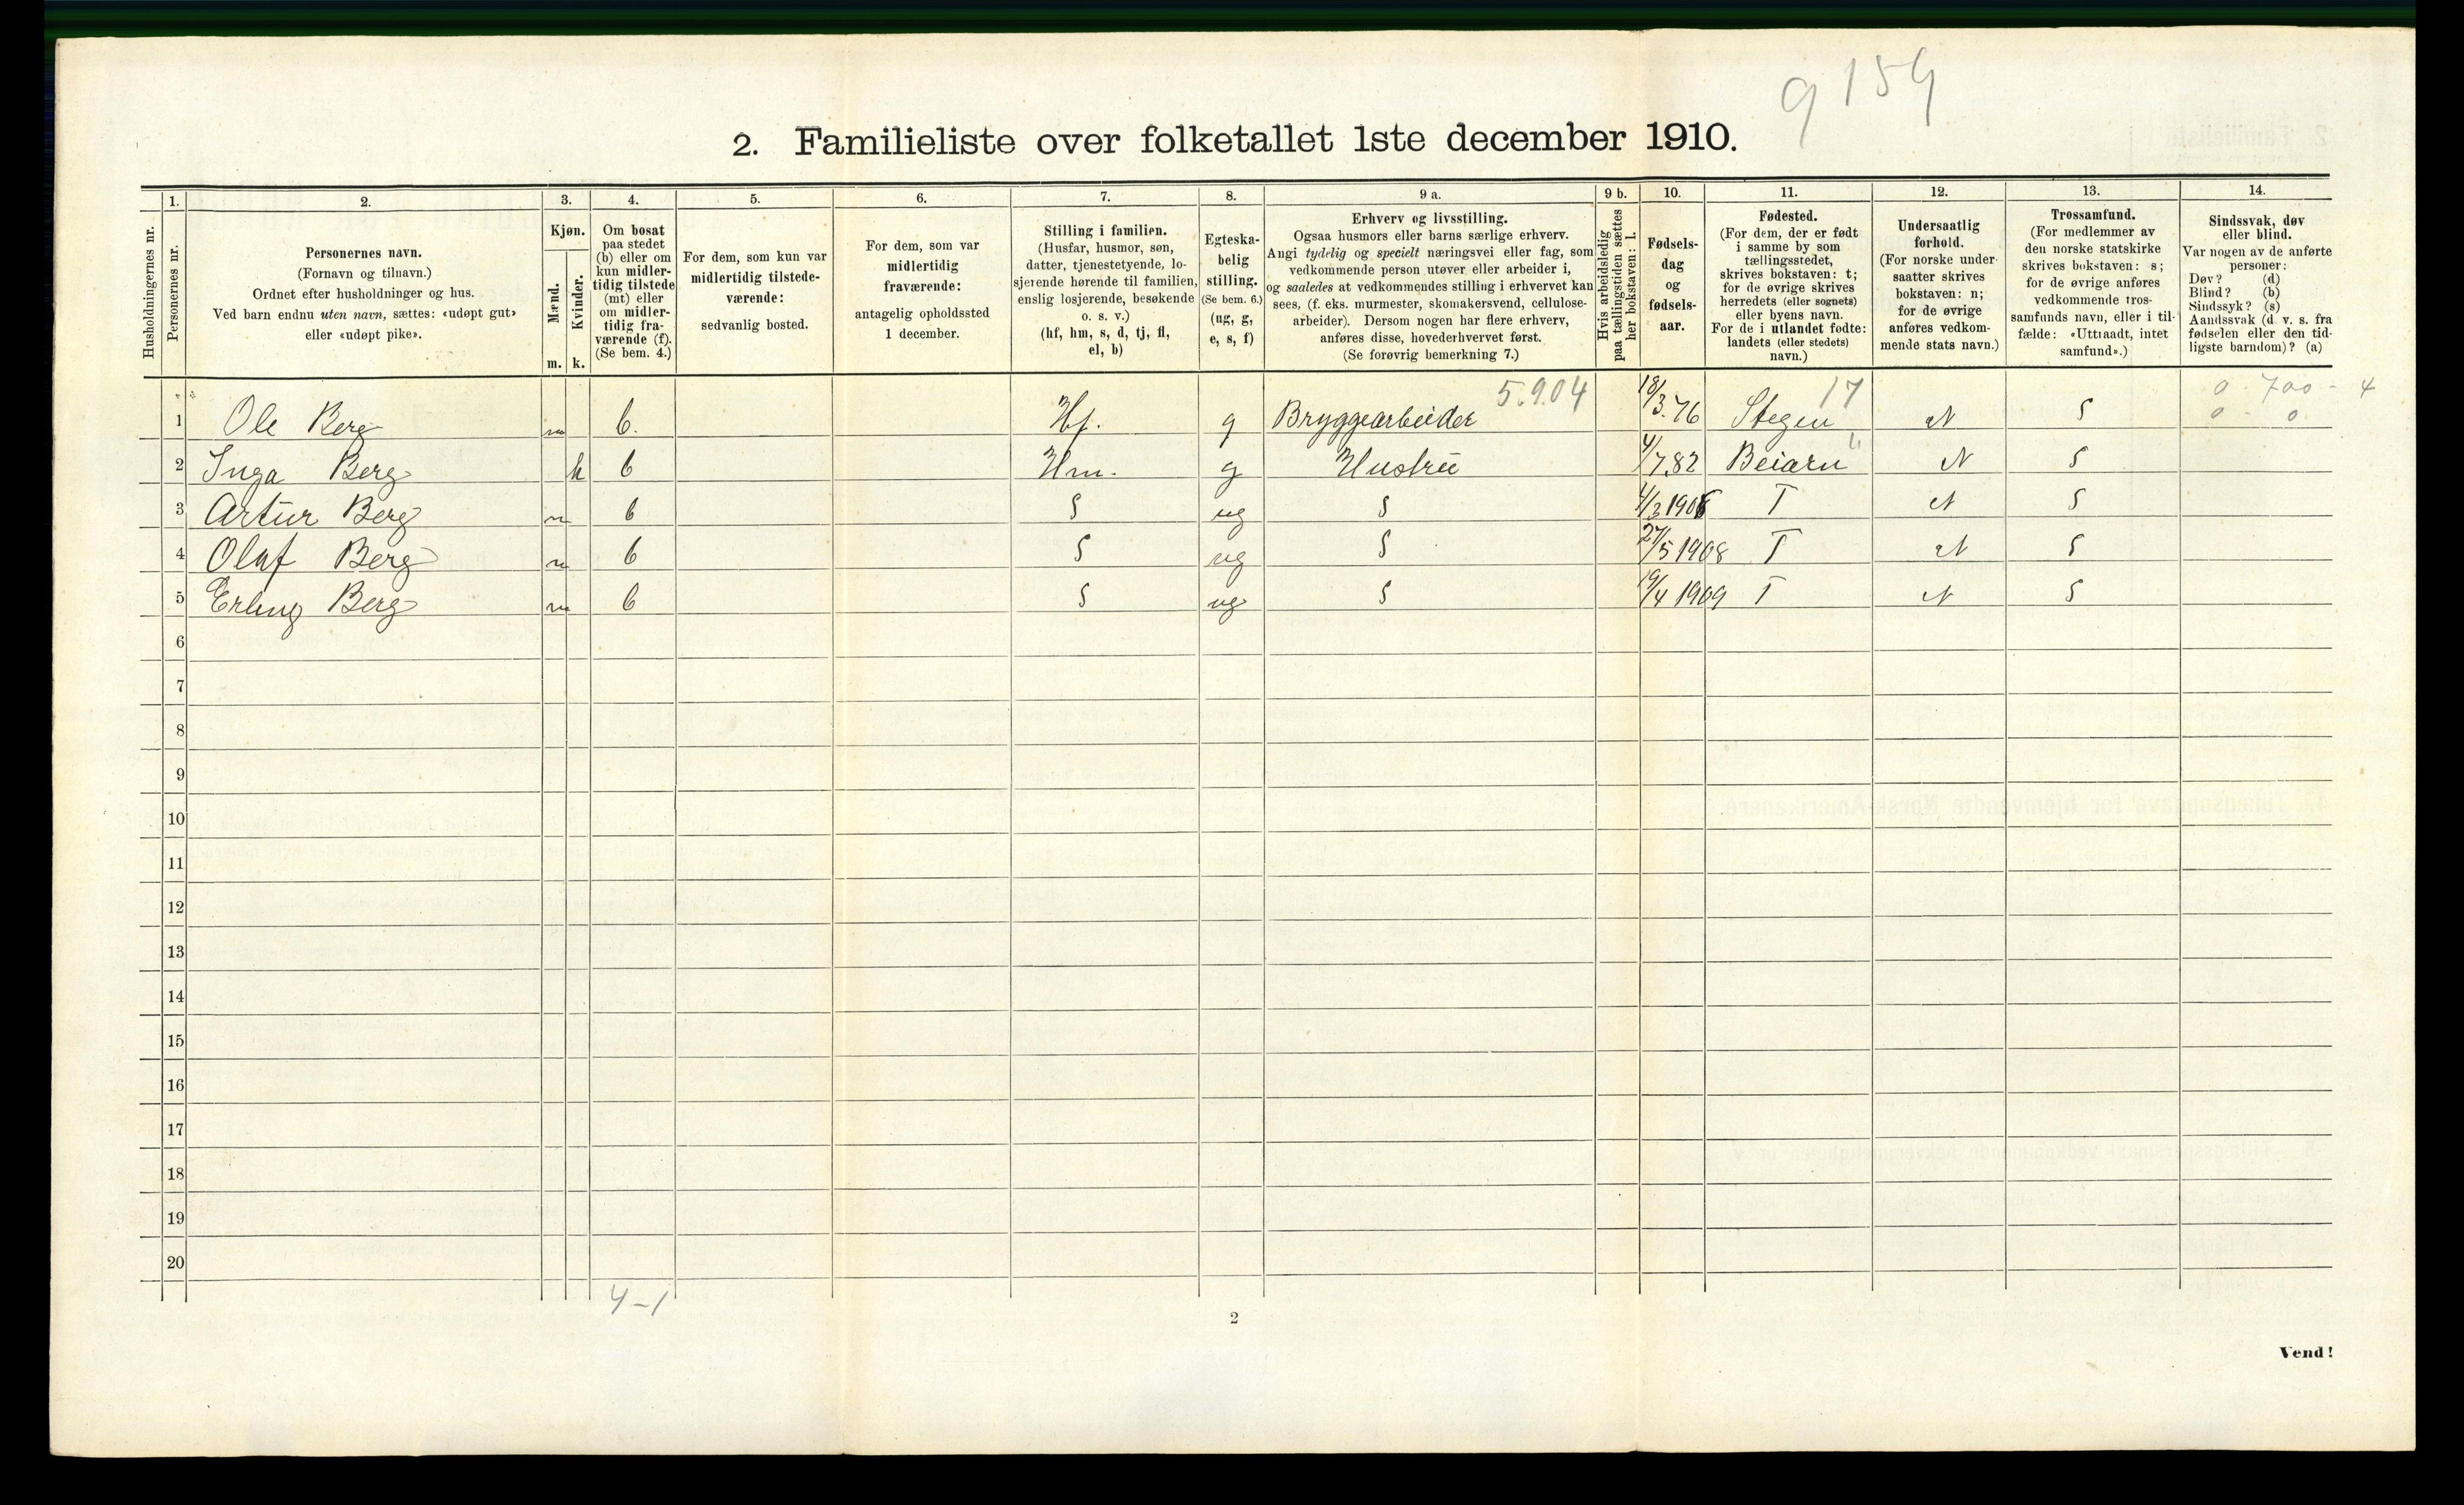 9159
2. Familieliste over folketallet 1ste december 1910.
Husholdningernes nr.
1. Personernes nr.
2. Personernes navn. (Fornavn og tilnavn.) Ordnet efter husholdninger og hus. Ved barn endnu uten navn, sættes: «udøpt gut» eller «udøpt pike».
3. Kjøn. Mænd. m. Kvinder. k.
4. Om bosat paa stedet (b) eller om kun midlertidig tilstede (mt) eller om midlertidig fraværende (f). (Se bem. 4.)
5. For dem, som kun var midlertidig tilstedeværende: sedvanlig bosted.
6. For dem, som var midlertidig fraværende: antagelig opholdssted 1 december.
7. Stilling i familien. (Husfar, husmor, søn, datter, tjenestetyende, losjerende hørende til familien, enslig losjerende, besøkende o. s. v.) (hf, hm, s, d, tj, fl, el, b)
8. Egteskabelig stilling. (Se bem. 6.) (ug, g, e, s, f)
9 a. Erhverv og livsstilling. Ogsaa husmors eller barns særlige erhverv. Angi tydelig og specielt næringsvei eller fag, som vedkommende person utøver eller arbeider i, og saaledes at vedkommendes stilling i erhvervet kan sees, (f. eks. murmester, skomakersvend, cellulosearbeider). Dersom nogen har flere erhverv, anføres disse, hovederhvervet først. (Se forøvrig bemerkning 7.)
9 b. Hvis arbeidsledig paa tællingstiden sættes her bokstaven: l.
10. Fødselsdag og fødselsaar.
11. Fødested. (For dem, der er født i samme by som tællingsstedet, skrives bokstaven: t; for de øvrige skrives herredets (eller sognets) eller byens navn. For de i utlandet fødte: landets (eller stedets) navn.)
12. Undersaatlig forhold. (For norske undersaatter skrives bokstaven: n; for de øvrige anføres vedkommende stats navn.)
13. Trossamfund. (For medlemmer av den norske statskirke skrives bokstaven: s; for de øvrige anføres vedkommende trossamfunds navn, eller i tilfælde: «Uttraadt, intet samfund».)
14. Sindssvak, døv eller blind. Var nogen av de anførte personer: Døv? (d) Blind? (b) Sindssyk? (s) Aandssvak (d. v. s. fra fødselen eller den tidligste barndom)? (a)
5.9.04 17 0 - 700 - 4
0 - 0
1 Ole Berg m b. Hf. g Bryggearbeider 18/3.76 Stegen N S
2 Inga Berg k b Hm. g Hustru 4/7.82 Beiarn N S
3 Artur Berg m b S ug S 4/3 T N S
4 Olaf Berg m b S ug S 27/5 1908 T N S
5 Erling Berg m b S ug S 19/4 1909 T N S
6
7
8
9
10
11
12
13
14
15
16
17
18
19
20
4-1
2
Vend!